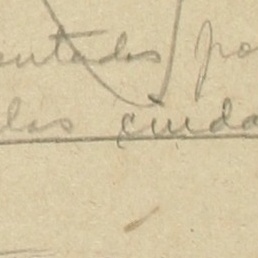 entados po
las ciuda